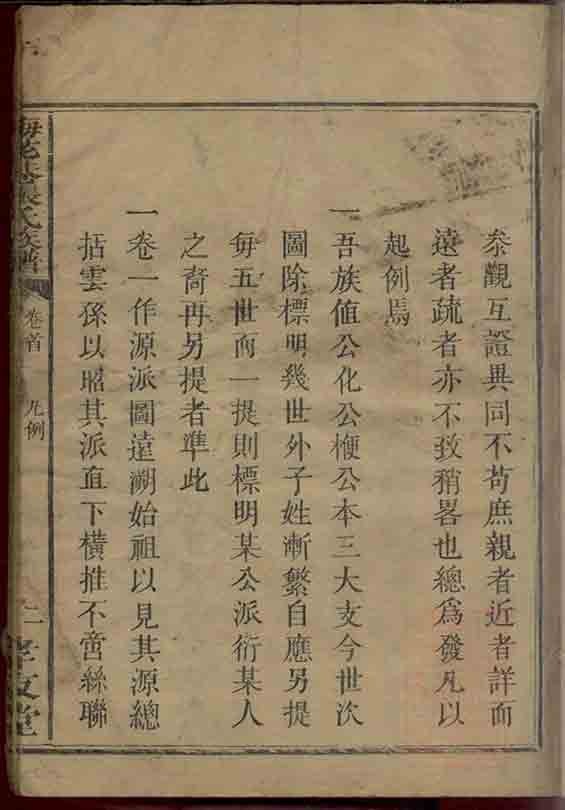 叅觀互證異同不苟庶親者近者詳而
遠者疏者亦不致稍畧也總爲發凡以
起例焉
一吾族値公化公楩公本三大支今世次
圖除標明幾世外子姓漸繁自應另提
每五世而一提則標明某公派衍某人
之裔再另提者準此
一卷一作源派圖遠溯始祖以見其源總
括雲孫以昭其派直下橫推不啻絲聯
氏族譜
卷首
凡例
二
孝友堂